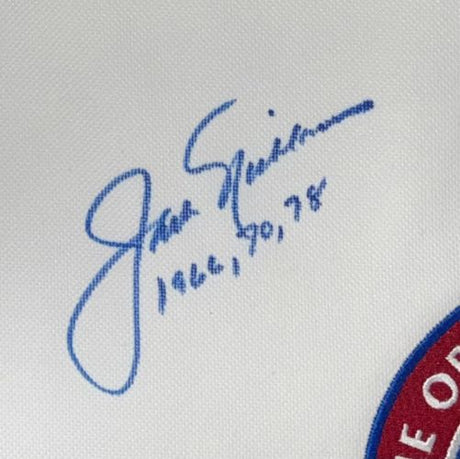 Jack Nicklaus
1966, 70, 78
HE OP